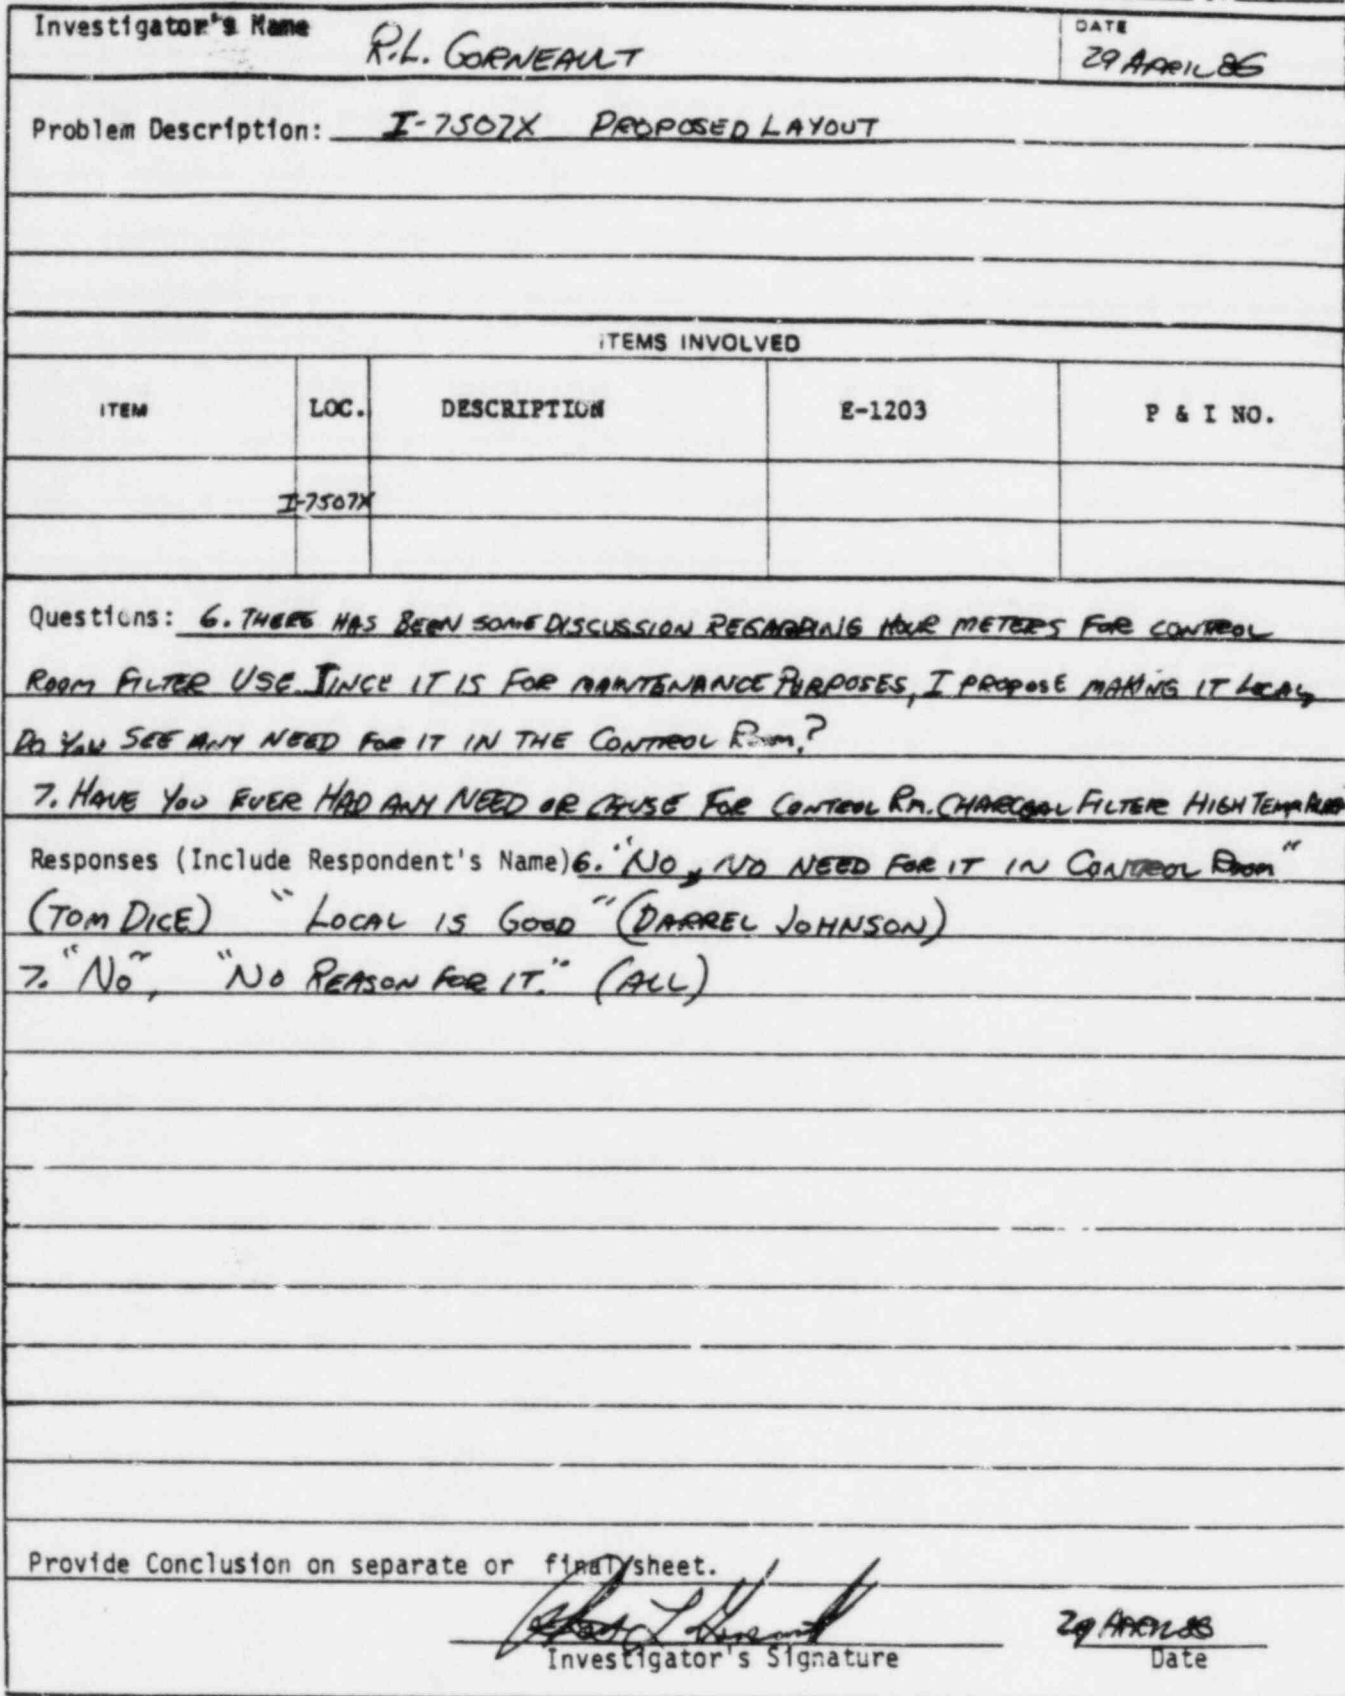 Investigator's Name R.L. GORNEAULT DATE 29 APRIL 86
Problem Description: I-7507X PROPOSED LAYOUT
ITEMS INVOLVED
ITEM LOC. DESCRIPTION E-1203 P & I NO.
I-7507X
Questions: 6. THERE HAS BEEN SOME DISCUSSION REGARDING HOUR METERS FOR CONTROL
ROOM FILTER USE. SINCE IT IS FOR MAINTENANCE PURPOSES, I PROPOSE MAKING IT LOCAL,
DO YOU SEE ANY NEED FOR IT IN THE CONTROL ROOM?
7. HAVE YOU EVER HAD ANY NEED OR CAUSE FOR CONTROL RM. CHARCOAL FILTER HIGH TEMP
Responses (Include Respondent's Name) 6. "NO, NO NEED FOR IT IN CONTROL ROOM"
(TOM DICE) "LOCAL IS GOOD" (DARREL JOHNSON)
7. "NO", "NO REASON FOR IT." (ALL)
Provide Conclusion on separate or final sheet.
29 APRIL 86
Investigator's Signature Date